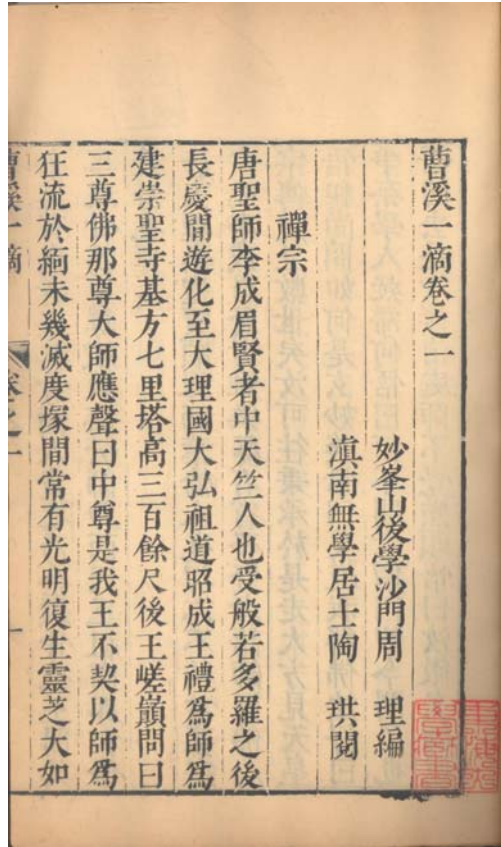 曹溪一滴卷之一
妙峯山後學沙門周 理編
滇南無學居士陶 珙閱
禪宗
唐聖師李成眉賢者中天竺人也受般若多羅之後
長慶間遊化至大理國大弘祖道昭成王禮爲師爲
建崇聖寺基方七里塔高三百餘尺後王嵯巔問曰
三尊佛那尊大師應聲曰中尊是我王不契以師爲
狂流於緬未幾滅度塚間常有光明復生靈芝大如
曹溪一滴 卷之一 一